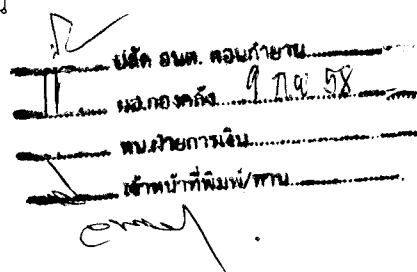 ปลัด อบต. ดอนกำยาน
ผอ.กองคลัง 9 ก.ย. 58
หน.ฝ่ายการเงิน
เจ้าหน้าที่พิมพ์/ทาน